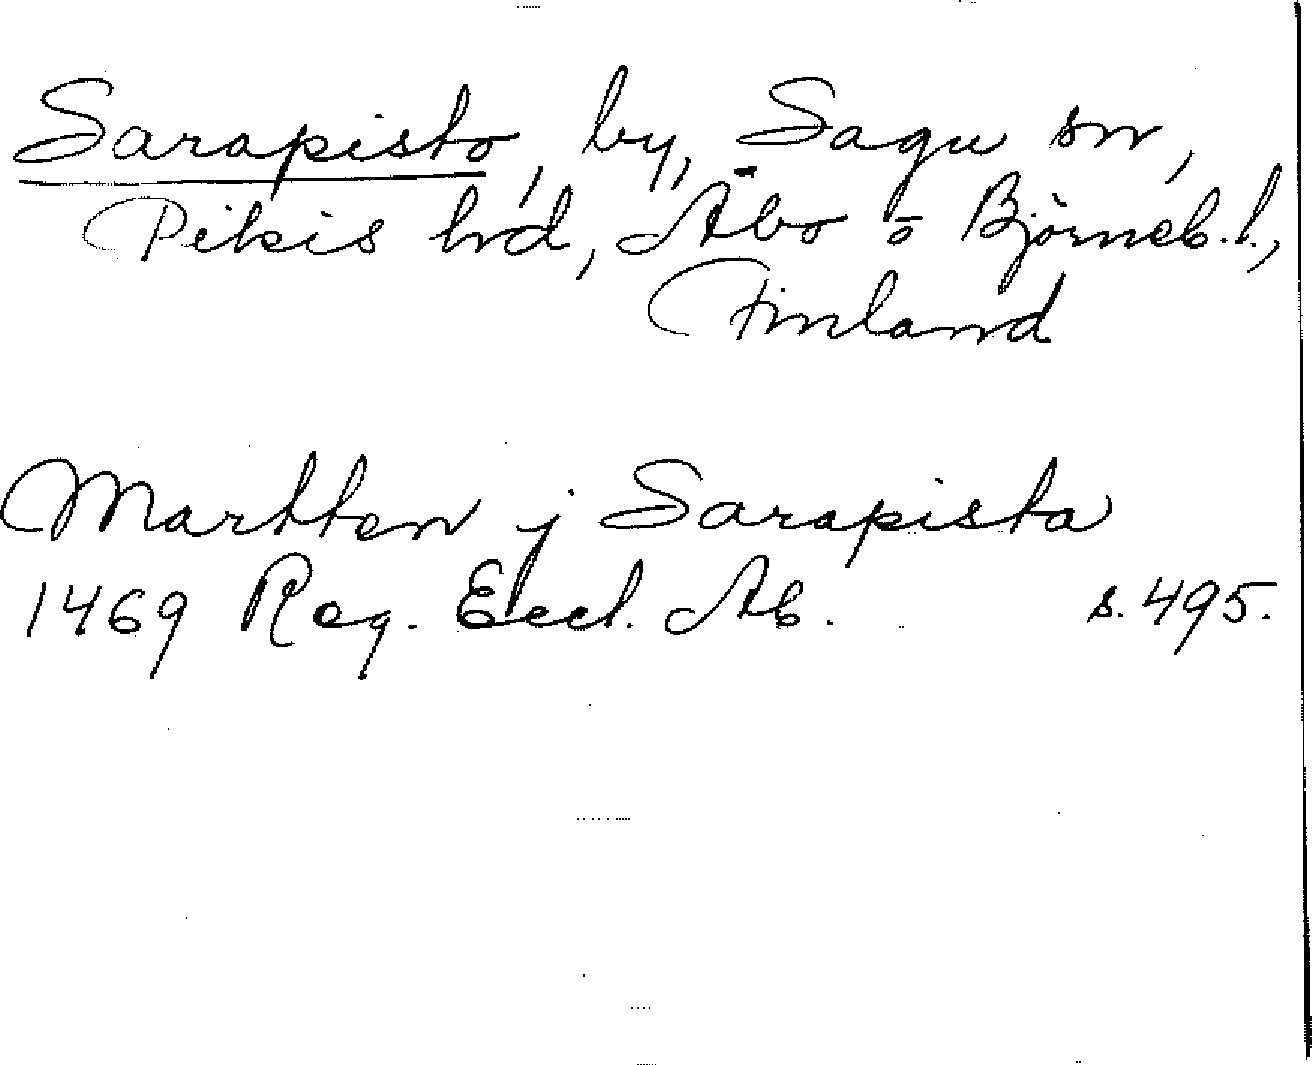 Sarapisto, by, Sagu sn,
Pikis hrd, Åbo o Björneb. l.,
Finland
Martten j Sarapista
1469 Reg. Eccl. Ab. s. 495.